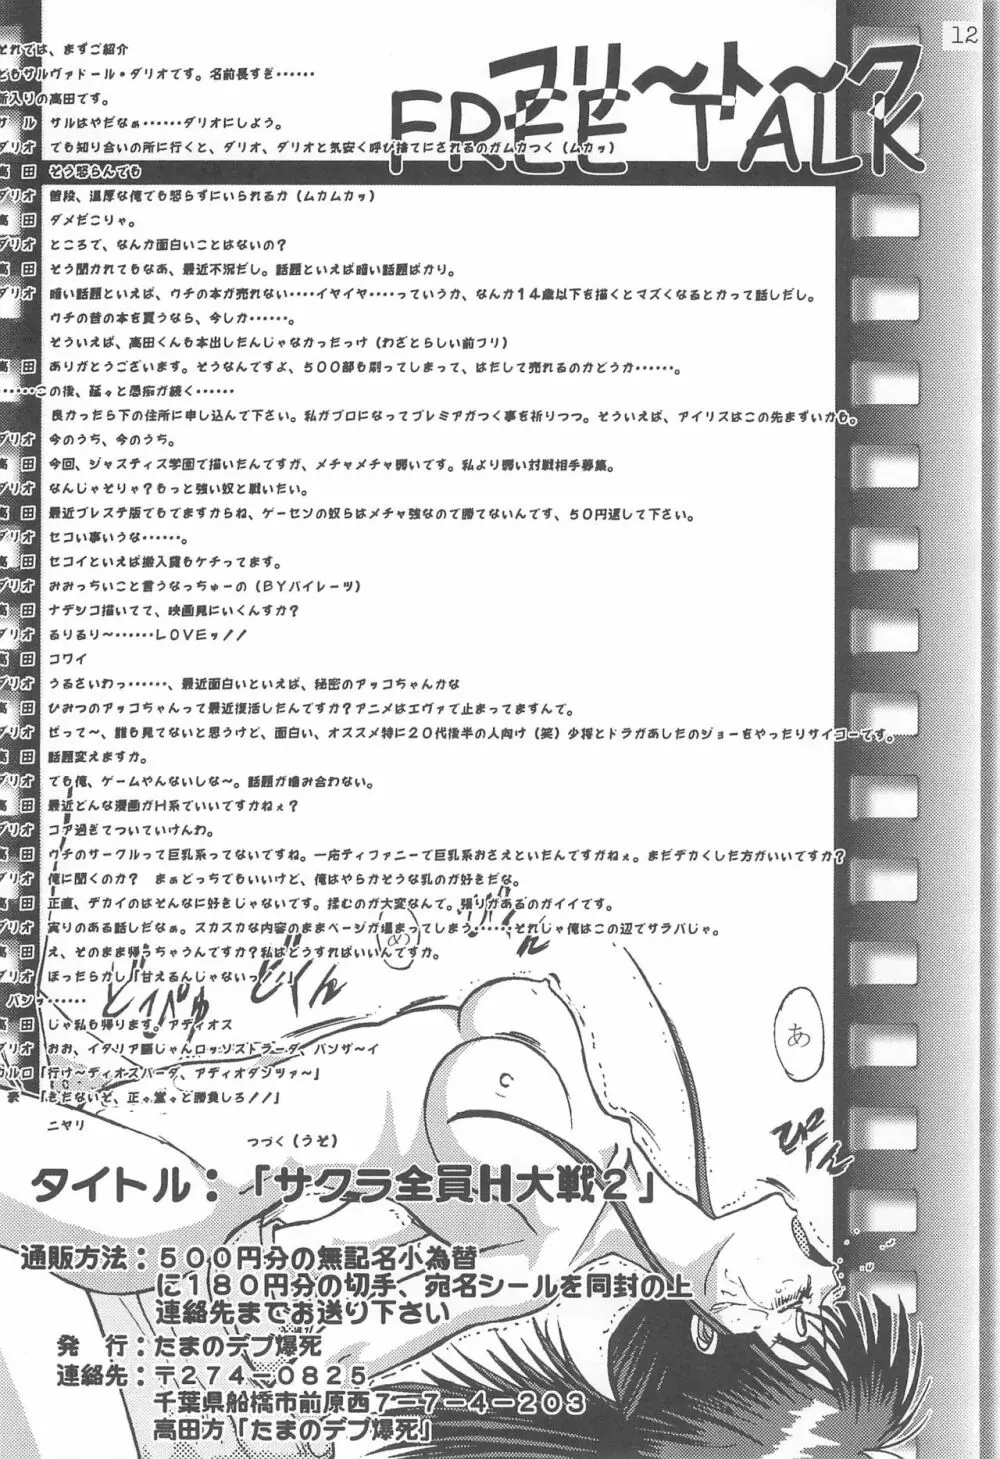 12
フリ〜ト〜ク
FREE TALK
それでは、まずご紹介
どもサルヴァドール・ダリオです。名前長すぎ‥‥‥
新入りの高田です。
サル サルはやだなぁ‥‥‥ダリオにしよう。
ダリオ でも知り合いの所に行くと、ダリオ、ダリオと気安く呼び捨てにされるのがムカつく（ムカッ）
高田 そう怒らんでも
ダリオ 普段、温厚な俺でも怒らずにいられるか（ムカムカッ）
高田 ダメだこりゃ。
ダリオ ところで、なんか面白いことはないの？
高田 そう聞かれてもなあ、最近不況だし。話題といえば暗い話題ばかり。
ダリオ 暗い話題といえば、ウチの本が売れない‥‥イヤイヤ‥‥っていうか、なんか14歳以下を描くとマズくなるとかって話しだし。
ウチの昔の本を買うなら、今しか‥‥‥。
そういえば、高田くんも本出したんじゃなかったっけ（わざとらしい前フリ）
高田 ありがとうございます。そうなんですよ、500部も刷ってしまって、はたして売れるのかどうか‥‥‥。
‥‥‥この後、延々と愚痴が続く‥‥‥
良かったら下の住所に申し込んで下さい。私がプロになってプレミアがつく事を祈りつつ。そういえば、アイリスはこの先まずいかも。
ダリオ 今のうち、今のうち。
高田 今回、ジャスティス学園で描いたんですが、メチャメチャ弱いです。私より弱い対戦相手募集。
ダリオ なんじゃそりゃ？もっと強い奴と戦いたい。
高田 最近プレステ版もでてますからね、ゲーセンの奴らはメチャ強なので勝てないんです、50円返して下さい。
ダリオ セコい事いうな‥‥‥。
高田 セコイといえば搬入費もケチってます。
ダリオ みみっちいこと言うなっちゅーの（BYパイレーツ）
高田 ナデシコ描いてて、映画見にいくんすか？
ダリオ るりるり〜‥‥‥LOVEッ！！
高田 コワイ
ダリオ うるさいわっ‥‥‥、最近面白いといえば、秘密のアッコちゃんかな
高田 ひみつのアッコちゃんって最近復活したんですか？アニメはエヴァで止まってますんで。
ダリオ だって〜、誰も見てないと思うけど、面白い、オススメ特に20代後半の人向け（笑）少将とドラがあしたのジョーをやったりサイコーです。
高田 話題変えますか。
ダリオ でも俺、ゲームやんないしな〜。話題が噛み合わない。
高田 最近どんな漫画がH系でいいですかねぇ？
ダリオ コア過ぎてついていけんわ。
高田 ウチのサークルって巨乳系ってないですね。一応ティファニーで巨乳系おさえといたんですがねぇ。まだデカくした方がいいですか？
ダリオ 俺に聞くのか？ まぁどっちでもいいけど、俺はやらかそうな乳のが好きだな。
高田 正直、デカイのはそんなに好きじゃないです。揉むのが大変なんで。張りがあるのがイイです。
ダリオ 実りのある話しだなぁ。スカスカな内容のままページが埋まってしまう‥‥‥それじゃ俺はこの辺でサラバじゃ。
高田 え、そのまま帰っちゃうんですか？私はどうすればいいんですか。
ダリオ ほったらかし「甘えるんじゃないっ！！」
バンッ‥‥‥
高田 じゃ私も帰ります。アディオス
ダリオ おお、イタリア語じゃんロッソストラーダ、バンザ〜イ
カルロ「行け〜ディオスパーダ、アディオダンツァ〜」
豪「きたないぞ、正々堂々と勝負しろ！！」
ニヤリ
つづく（うそ）
め
あ
タイトル：「サクラ全員H大戦2」
通販方法：500円分の無記名小為替
に180円分の切手、宛名シールを同封の上
連絡先までお送り下さい
発 行：たまのデブ爆死
連絡先：〒274-0825
千葉県船橋市前原西7-7-4-203
高田方「たまのデブ爆死」